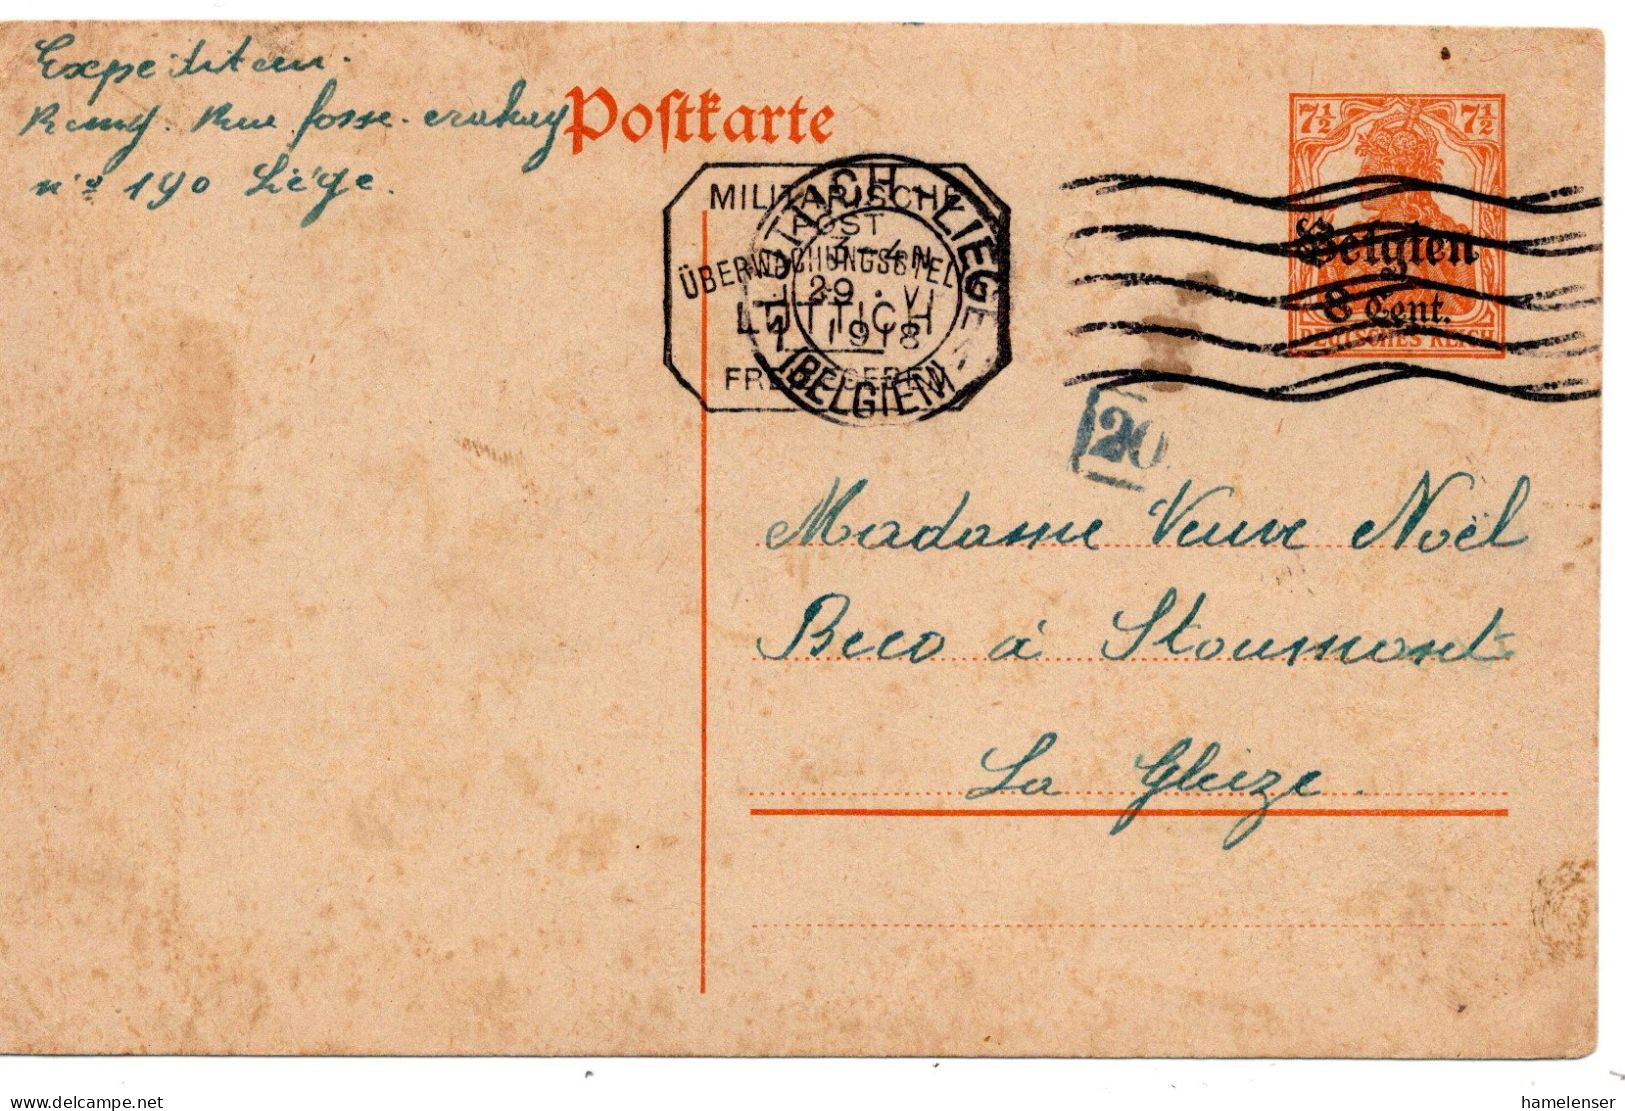 Expéditeur.
Remy. Rue fosse-crahay
n° 190 Liége.
Postkarte
7½ 7½
Belgien
8 Cent.
DEUTSCHES REICH
MILITÄRISCHE
POST
ÜBERWACHUNGSSTELLE
LÜTTICH
FREIGEGEBEN
LÜTTICH-LIEGE
3-4 N
29. VI
1 1918
(BELGIEN)
20
Madame Veuve Noël
Beco à Stoumont
La Gleize.
www.delcampe.net
hamelenser